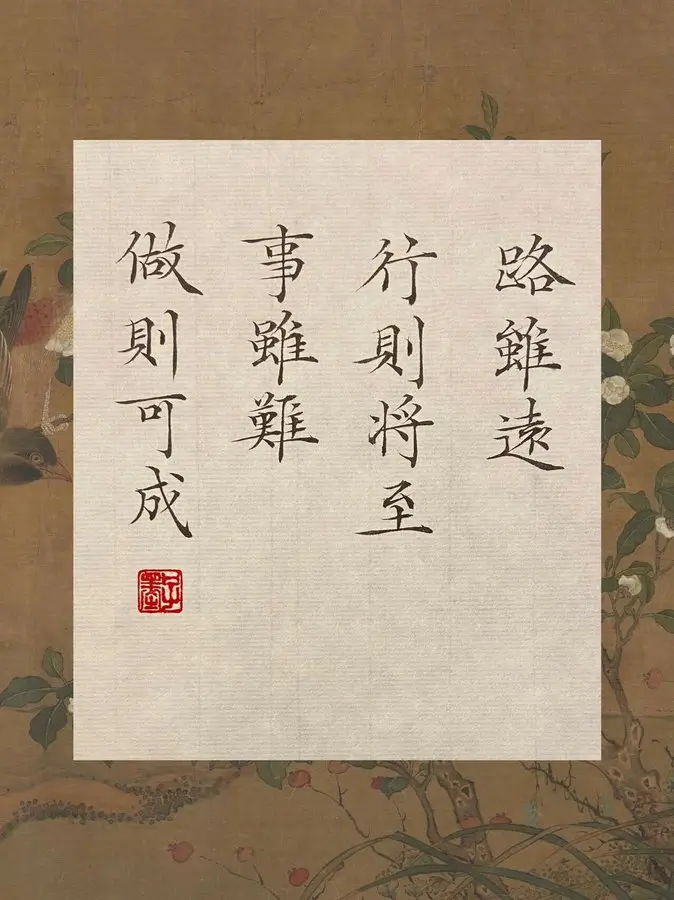 路雖遠
行則将至
事雖難
做則可成
子墨